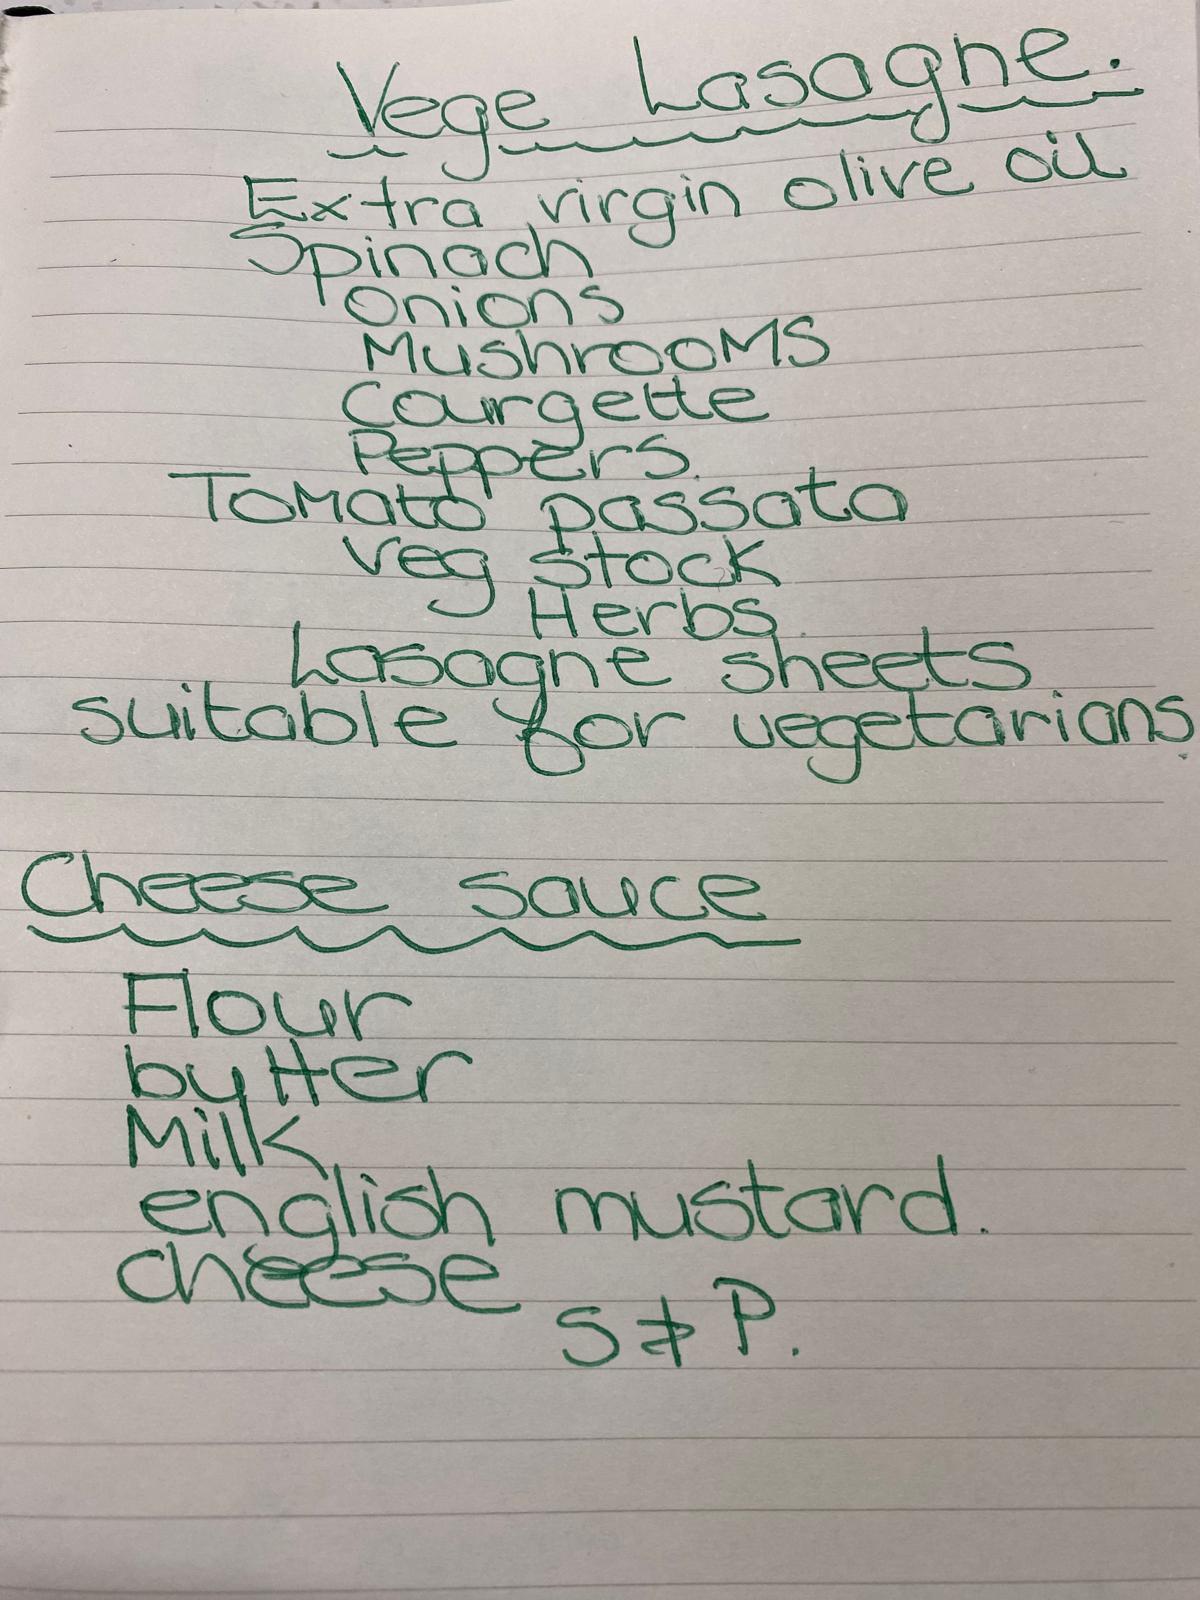 Vege Lasagne.
Extra virgin olive oil
Spinach
onions
Mushrooms
Courgette
Peppers.
Tomato passata
veg stock
Herbs.
Lasagne sheets
suitable for vegetarians.
Cheese sauce
Flour
butter
Milk
english mustard.
cheese
S & P.